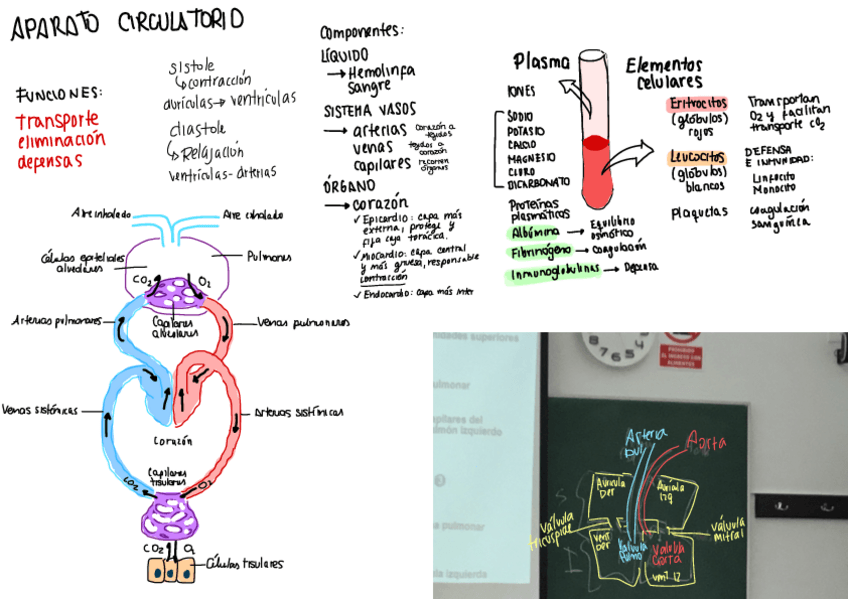 APARATO CIRCULATORIO
FUNCIONES:
transporte
eliminación
defensas
sistole
contracción
aurículas → ventrículas
diastole
Relajación
ventrículas-arterias
Componentes:
LÍQUIDO
→ Hemolinfa
Sangre
SISTEMA VASOS
→ arterias corazón a tejidos
venas tejidos a corazón
capilares recorren órganos
ÓRGANO
→ corazón
✓ Epicardio: capa más
externa, protege y
fija caja torácica.
✓ Miocardio: capa central
y más gruesa, responsable
contracción
✓ Endocardio: capa más inter
Plasma
IONES
SODIO
POTASIO
CALCIO
MAGNESIO
CLORO
BICARBONATO
Proteínas
plasmáticas
Albúmina → Equilibrio
osmótico
Fibrinógeno → coagulación
Inmunoglobulinas → Defensa
Elementos
celulares
Eritrocitos
(glóbulos)
rojos
Transportan
O2 y facilitan
transporte CO2
Leucocitos
(glóbulos)
blancos
DEFENSA
E INMUNIDAD:
Linfocito
Monocito
Plaquetas
coagulación
sanguínea
Aire inhalado
Aire exhalado
Células epiteliales
alveolares
Pulmones
CO2
O2
Capilares
alveolares
Arterias pulmonares
Venas pulmonares
Venas sistémicas
Arterias sistémicas
corazón
Capilares
tisulares
CO2
O2
CO2
O2
Células tisulares
nidades superiores
ulmonar
apilares del
ulmón izquierdo
a pulmonar
ula izquierda
8 7 6 5 4
PROHIBIDO
EL INGRESO CON
ALIMENTOS
Arteria
Pul
Aorta
Aurícula
Der
Aurícula
Izq
válvula
tricuspide
válvula
mitral
vent
Der
Valvula
Pulmo
Valvula
aorta
vent Iz